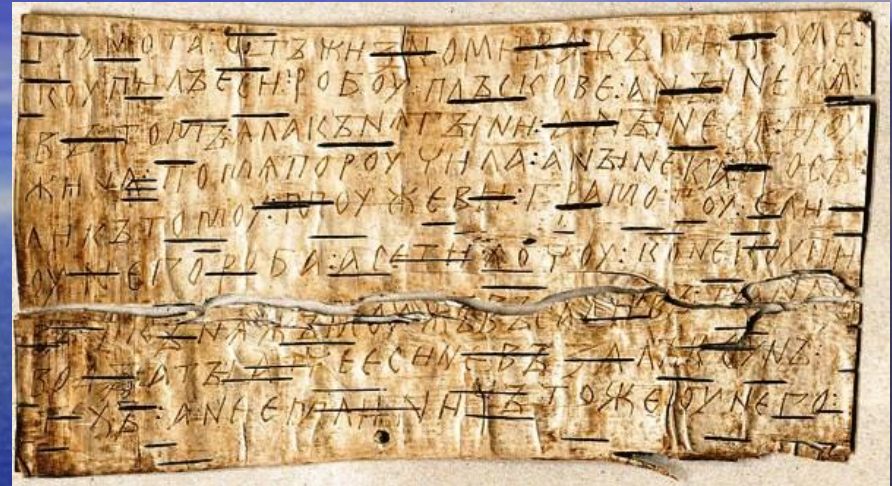 грамота : отъ жизномира : къ микоуле :
коупилъ еси : робоу : плъскове : а нꙑне мѧ :
въ томъ : ѧла кънѧгꙑни : а нꙑне сѧ дроу
жина : по мѧ пороучила : а нꙑне ка : посъ
ли къ томоу : моужеви : грамотоу : ели
оу него роба : а се ти хочоу : коне коупи
въ : и кънѧжъ моужъ въсадивъ : та на съ
водꙑ : а тꙑ атче еси не възалъ коунъ :
техъ : а не емли : ничъто же оу него :